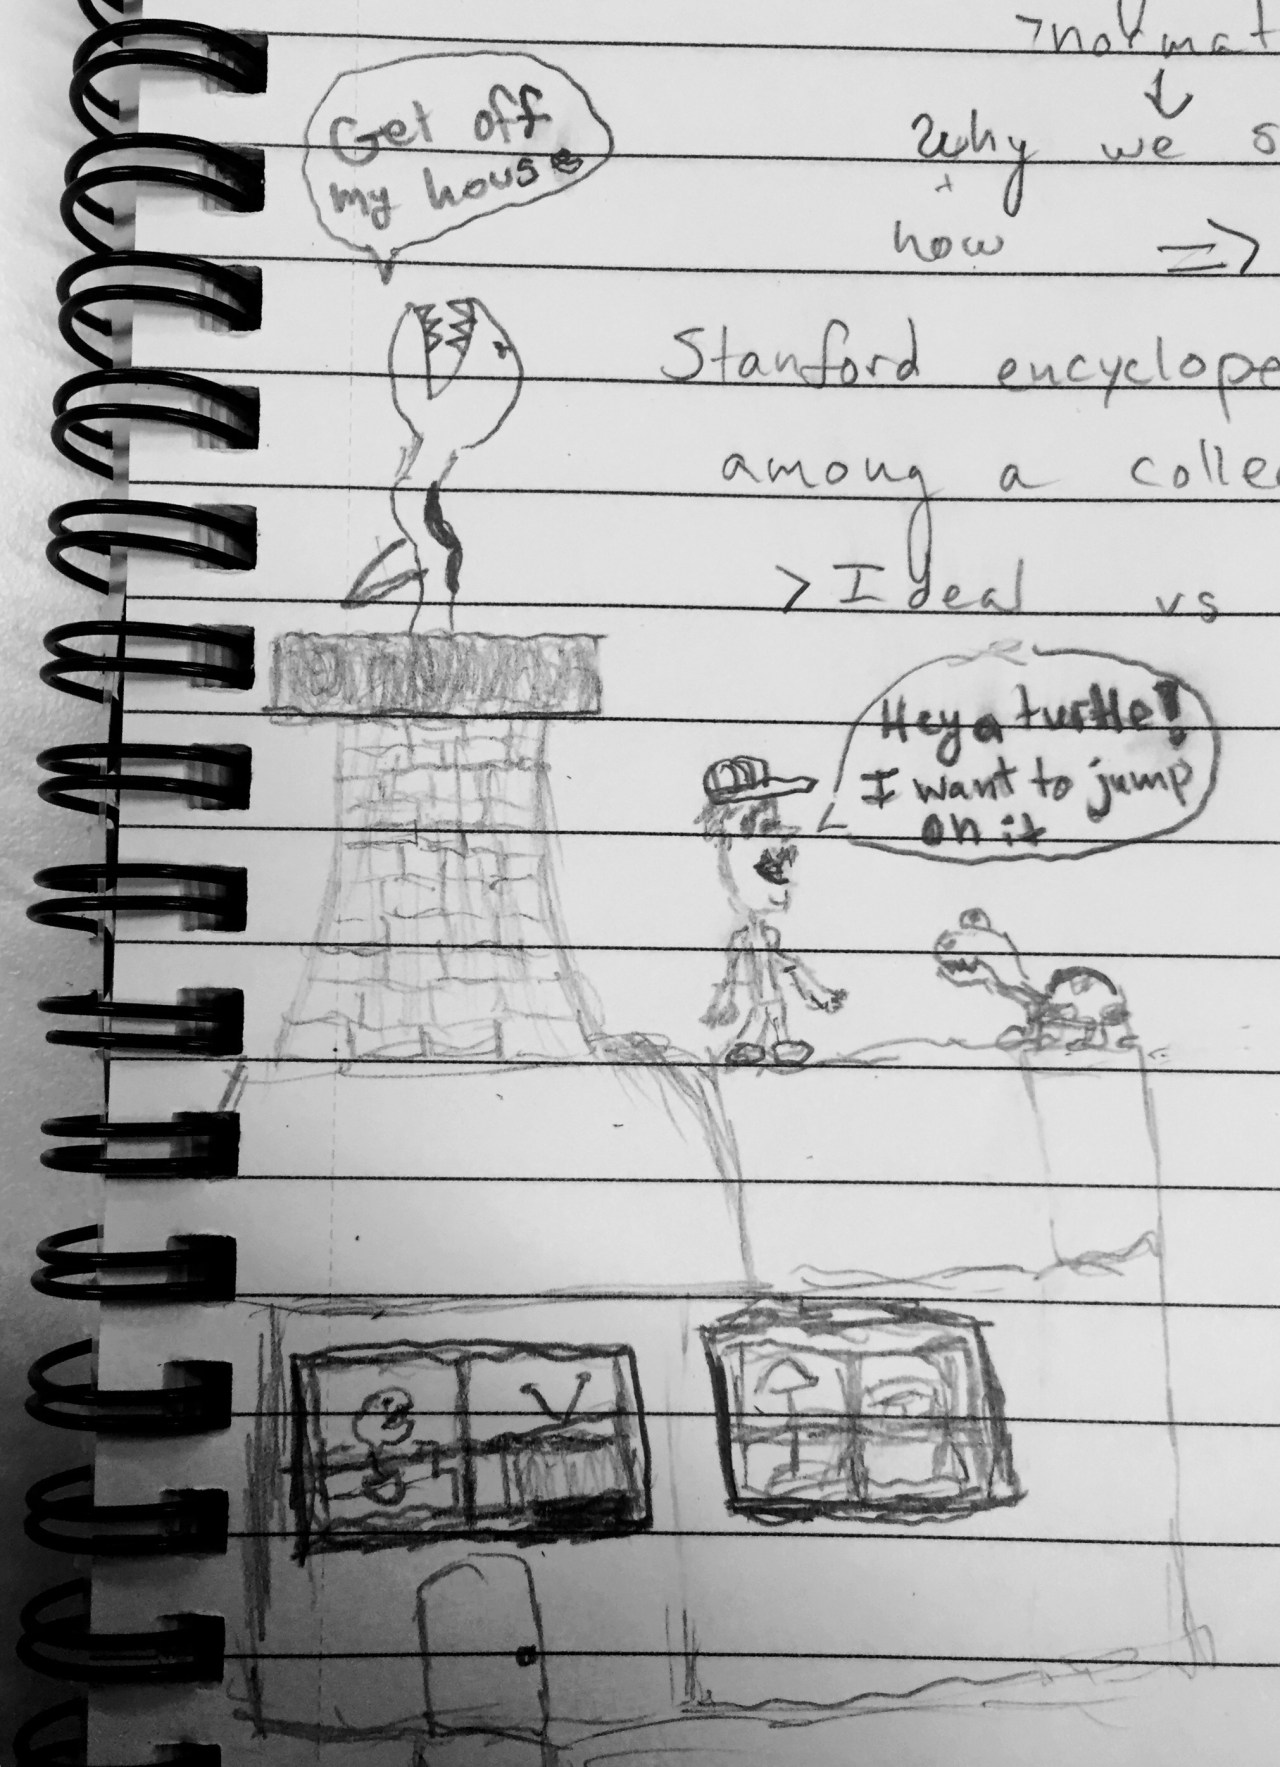 >normat
Why we s
+
how =>
Get off
my house
Stanford encyclope
among a collec
>Ideal vs
Hey a turtle!
I want to jump
on it